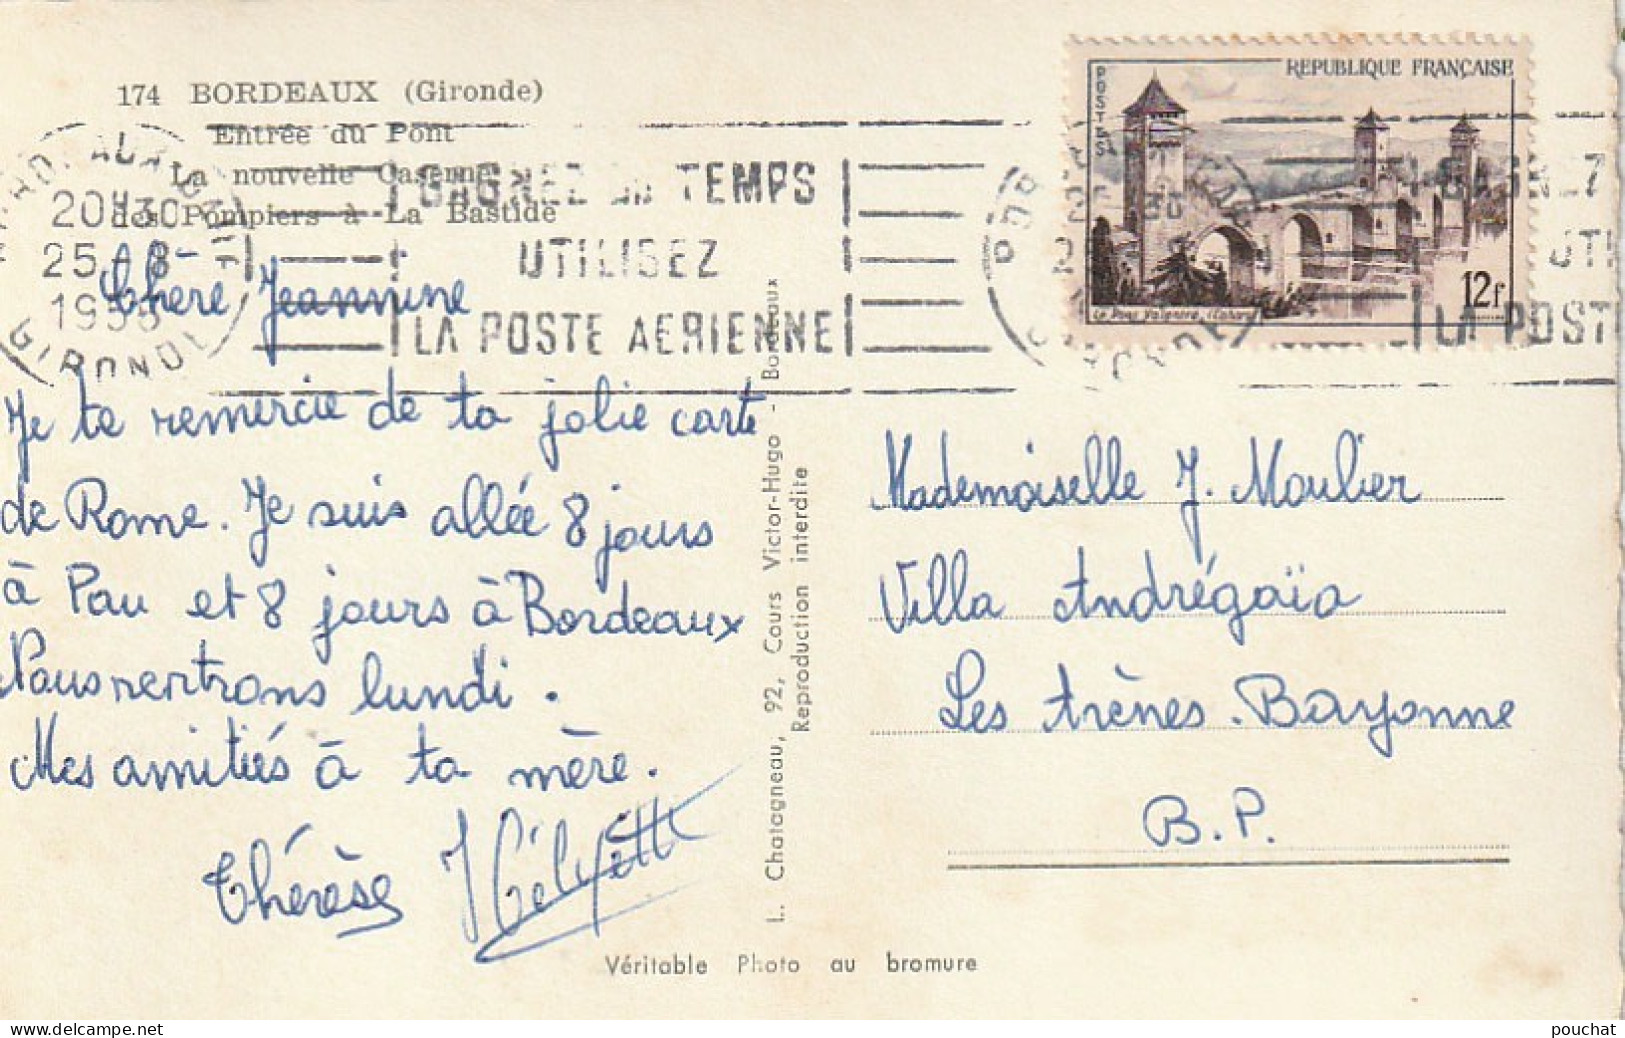 174 BORDEAUX (Gironde)
Entrée du Pont
La nouvelle Caserne
des Pompiers à La Bastide
20H30
25-8
GIRONDE
GAGNEZ DU TEMPS
UTILISEZ
LA POSTE AERIENNE
REPUBLIQUE FRANÇAISE
POSTES
12F
Le Pont Valentré (Cahors)
GAGNEZ
UTI
LA POST
GIRONDE
Chère Jeannine
Je te remercie de ta jolie carte
de Rome. Je suis allée 8 jours
à Pau et 8 jours à Bordeaux
Nous rentrons lundi.
Mes amitiés à ta mère.
Thérèse
L. Chatagneau, 92, Cours Victor-Hugo - Bordeaux
Reproduction interdite
Véritable Photo au bromure
Mademoiselle J. Moulier
Villa Andrégaïa
Les Arènes. Bayonne
B.P.
pouchat